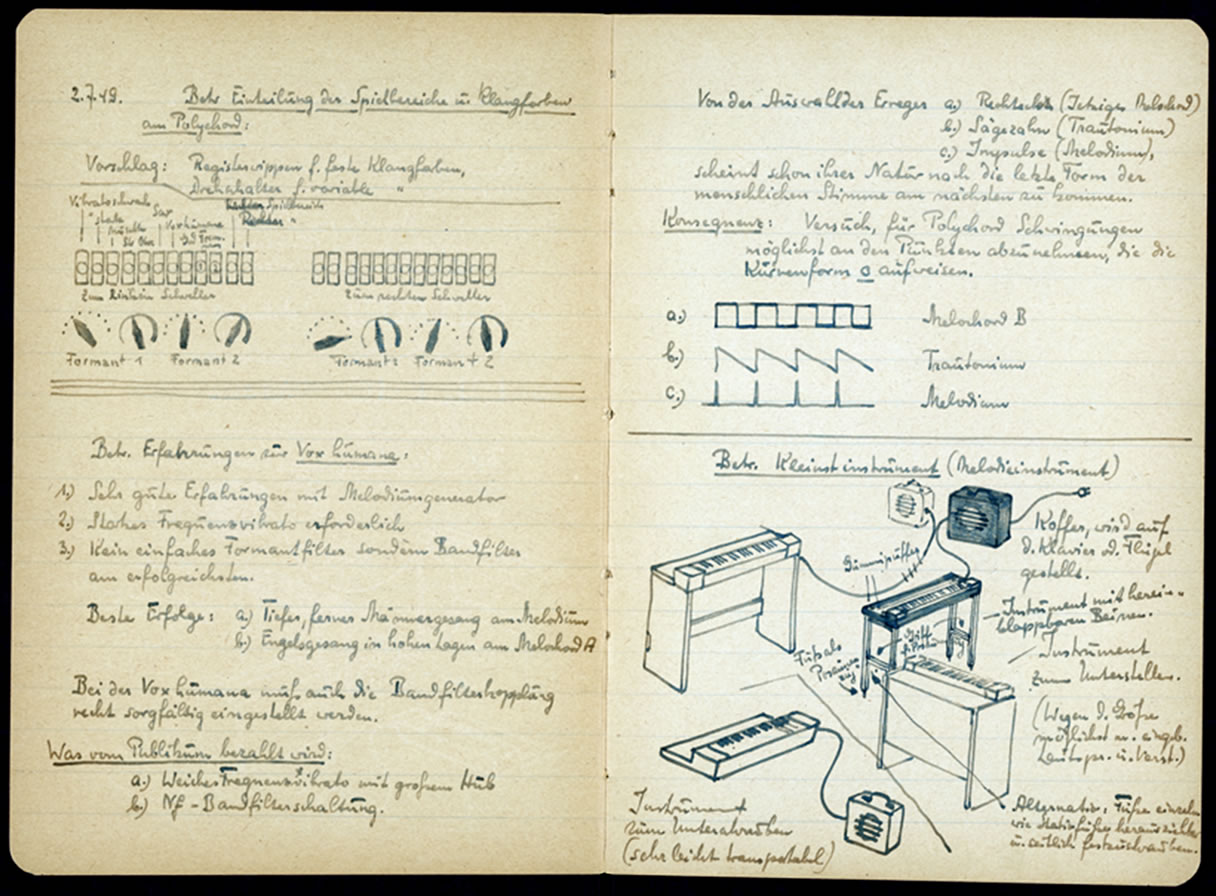 2.7.49. Betr. Einteilung der Spielbereiche u. Klangfarben
am Polychord:
Vorschlag: Registerwippen f. feste Klangfarben,
Drehschalter f. variable "
Vibrato schwach
" stark
Vox humana
zum linken Schweller
zum rechten Schweller
Formant 1 Formant 2
Formant 1 Formant 2
Betr. Erfahrungen zur Vox humana:
1.) Sehr gute Erfahrungen mit Melodiumgenerator
2.) Starkes Frequenzvibrato erforderlich
3.) Kein einfaches Formantfilter sondern Bandfilter
am erfolgreichsten.
Beste Erfolge: a.) Tiefer, ferner Männergesang am Melodium
b.) Engelsgesang in hohen Lagen am Melochord A
Bei der Vox humana muß auch die Bandfilterkopplung
recht sorgfältig eingestellt werden.
Was vom Publikum bezahlt wird:
a.) Weiches Frequenzvibrato mit großem Hub
b.) Nf - Bandfilterschaltung.
Von der Auswahl der Erreger a.) Rechteck (Jetziges Melochord)
b.) Sägezahn (Trautonium)
c.) Impulse (Melodium),
scheint schon ihrer Natur nach die letzte Form der
menschlichen Stimme am nächsten zu kommen.
Konsequenz: Versuch, für Polychord Schwingungen
möglichst an den Punkten abzunehmen, die die
Kurvenform c aufweisen.
a.) Melochord B
b.) Trautonium
c.) Melodium
Betr. Kleinstinstrument (Melodieinstrument)
Koffer, wird auf
d. Klavier od. Flügel
gestellt.
Gummipuffer
Instrument mit herein-
klappbaren Beinen.
Fuß als
Instrument
zum Unterstellen.
(Wegen d. Größe
möglichst m. eingeb.
Lautspr. u. Verst.)
Instrument
zum Unterschrauben
(sehr leicht transportabel)
Alternativ: Füße einzeln
wie Stativfüße herausziehbar
u. seitlich festzuschrauben.